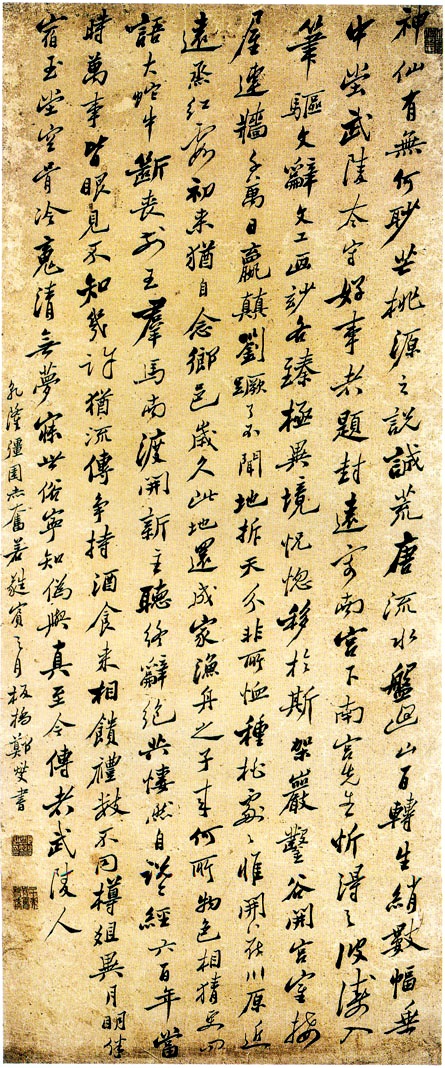 神仙有無何眇芒桃源之說誠荒唐流水盤迴山百轉生綃數幅垂
中堂武陵太守好事者題封遠寄南宮下南宮先生忻得之波濤入
筆驅文辭文工畫妙各臻極異境恍惚移於斯架巖鑿谷開宮室接
屋連牆千萬日嬴顛劉蹶了不聞地坼天分非所恤種桃處〻惟開花川原近
遠蒸紅霞初來猶自念鄉邑歲久此地還成家漁舟之子來何所物色相猜更問
語大蛇中斷喪前王羣馬南渡開新主聽終辭絕共悽然自說經六百年當
時萬事皆眼見不知幾許猶流傳爭持酒食來相饋禮數不同樽俎異月明伴
宿玉堂空骨冷魂清無夢寐世俗寧知偽與真至今傳者武陵人
乾隆彊圉赤奮若蕤賓之月板橋鄭燮書